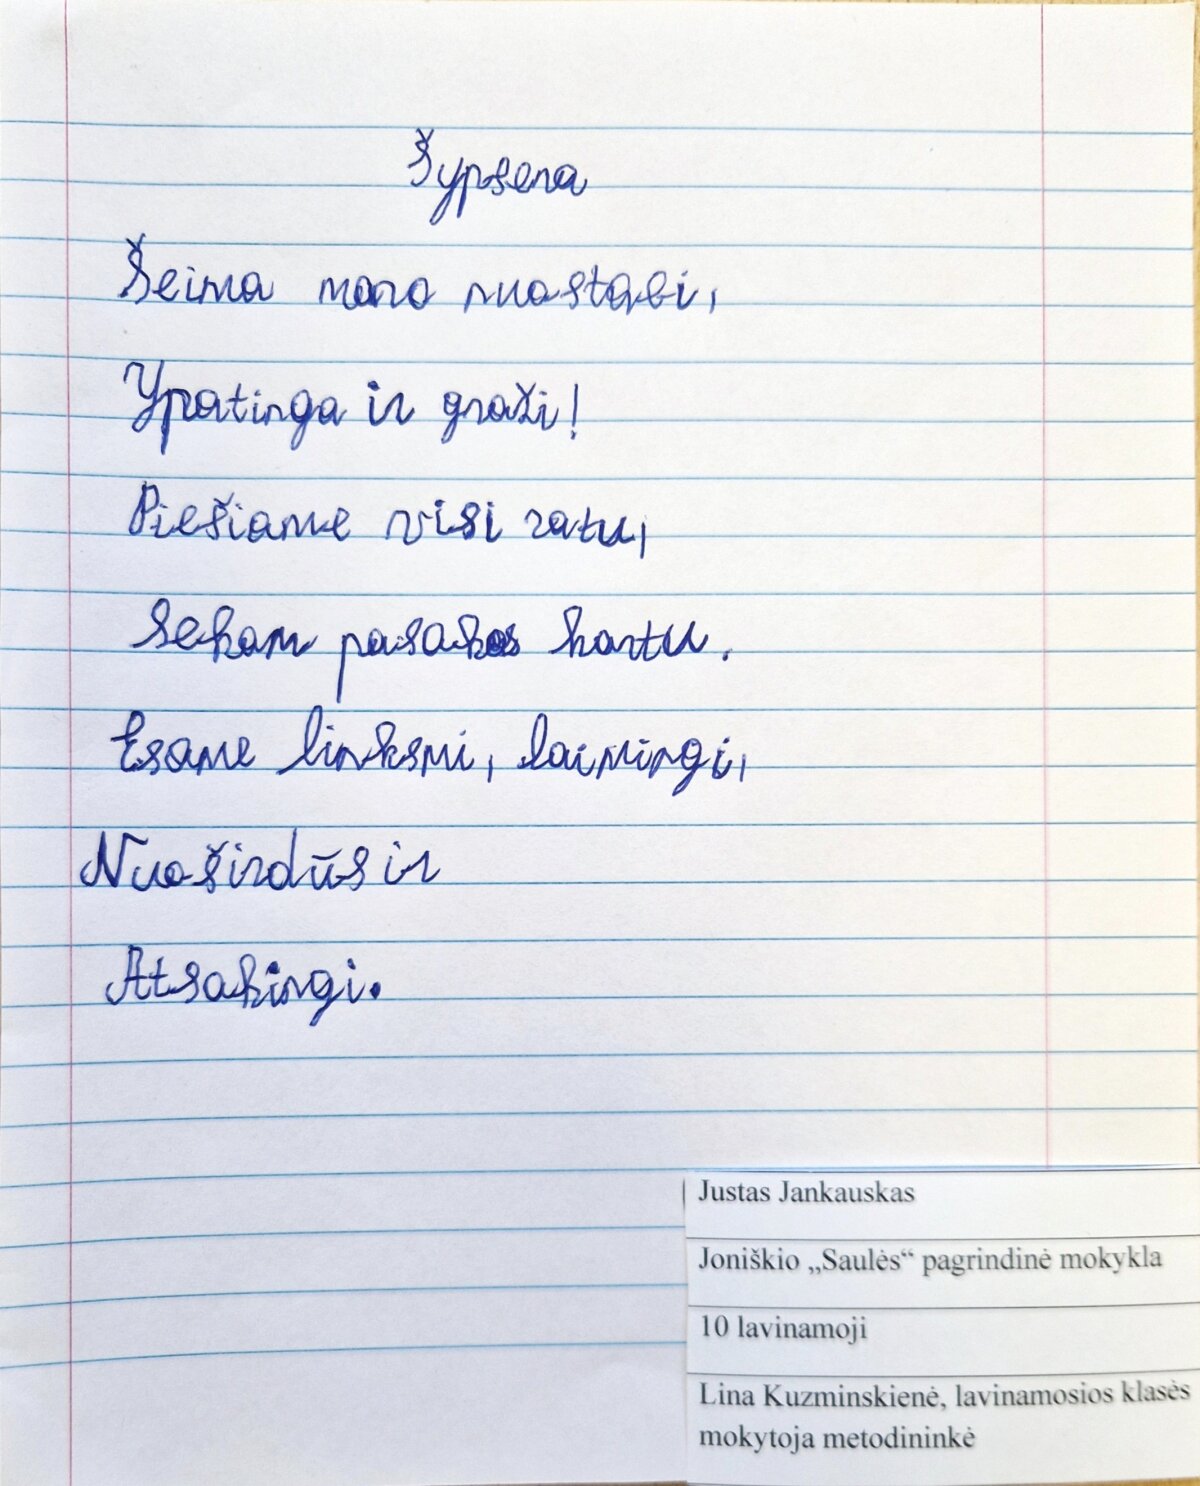 Šypsena
Šeima mano nuostabi,
Ypatinga ir graži!
Piešiame visi ratu,
Sekam pasakas kartu.
Esame linksmi, laimingi,
Nuoširdūs ir
Atsakingi.
Justas Jankauskas
Joniškio „Saulės“ pagrindinė mokykla
10 lavinamoji
Lina Kuzminskienė, lavinamosios klasės
mokytoja metodininkė